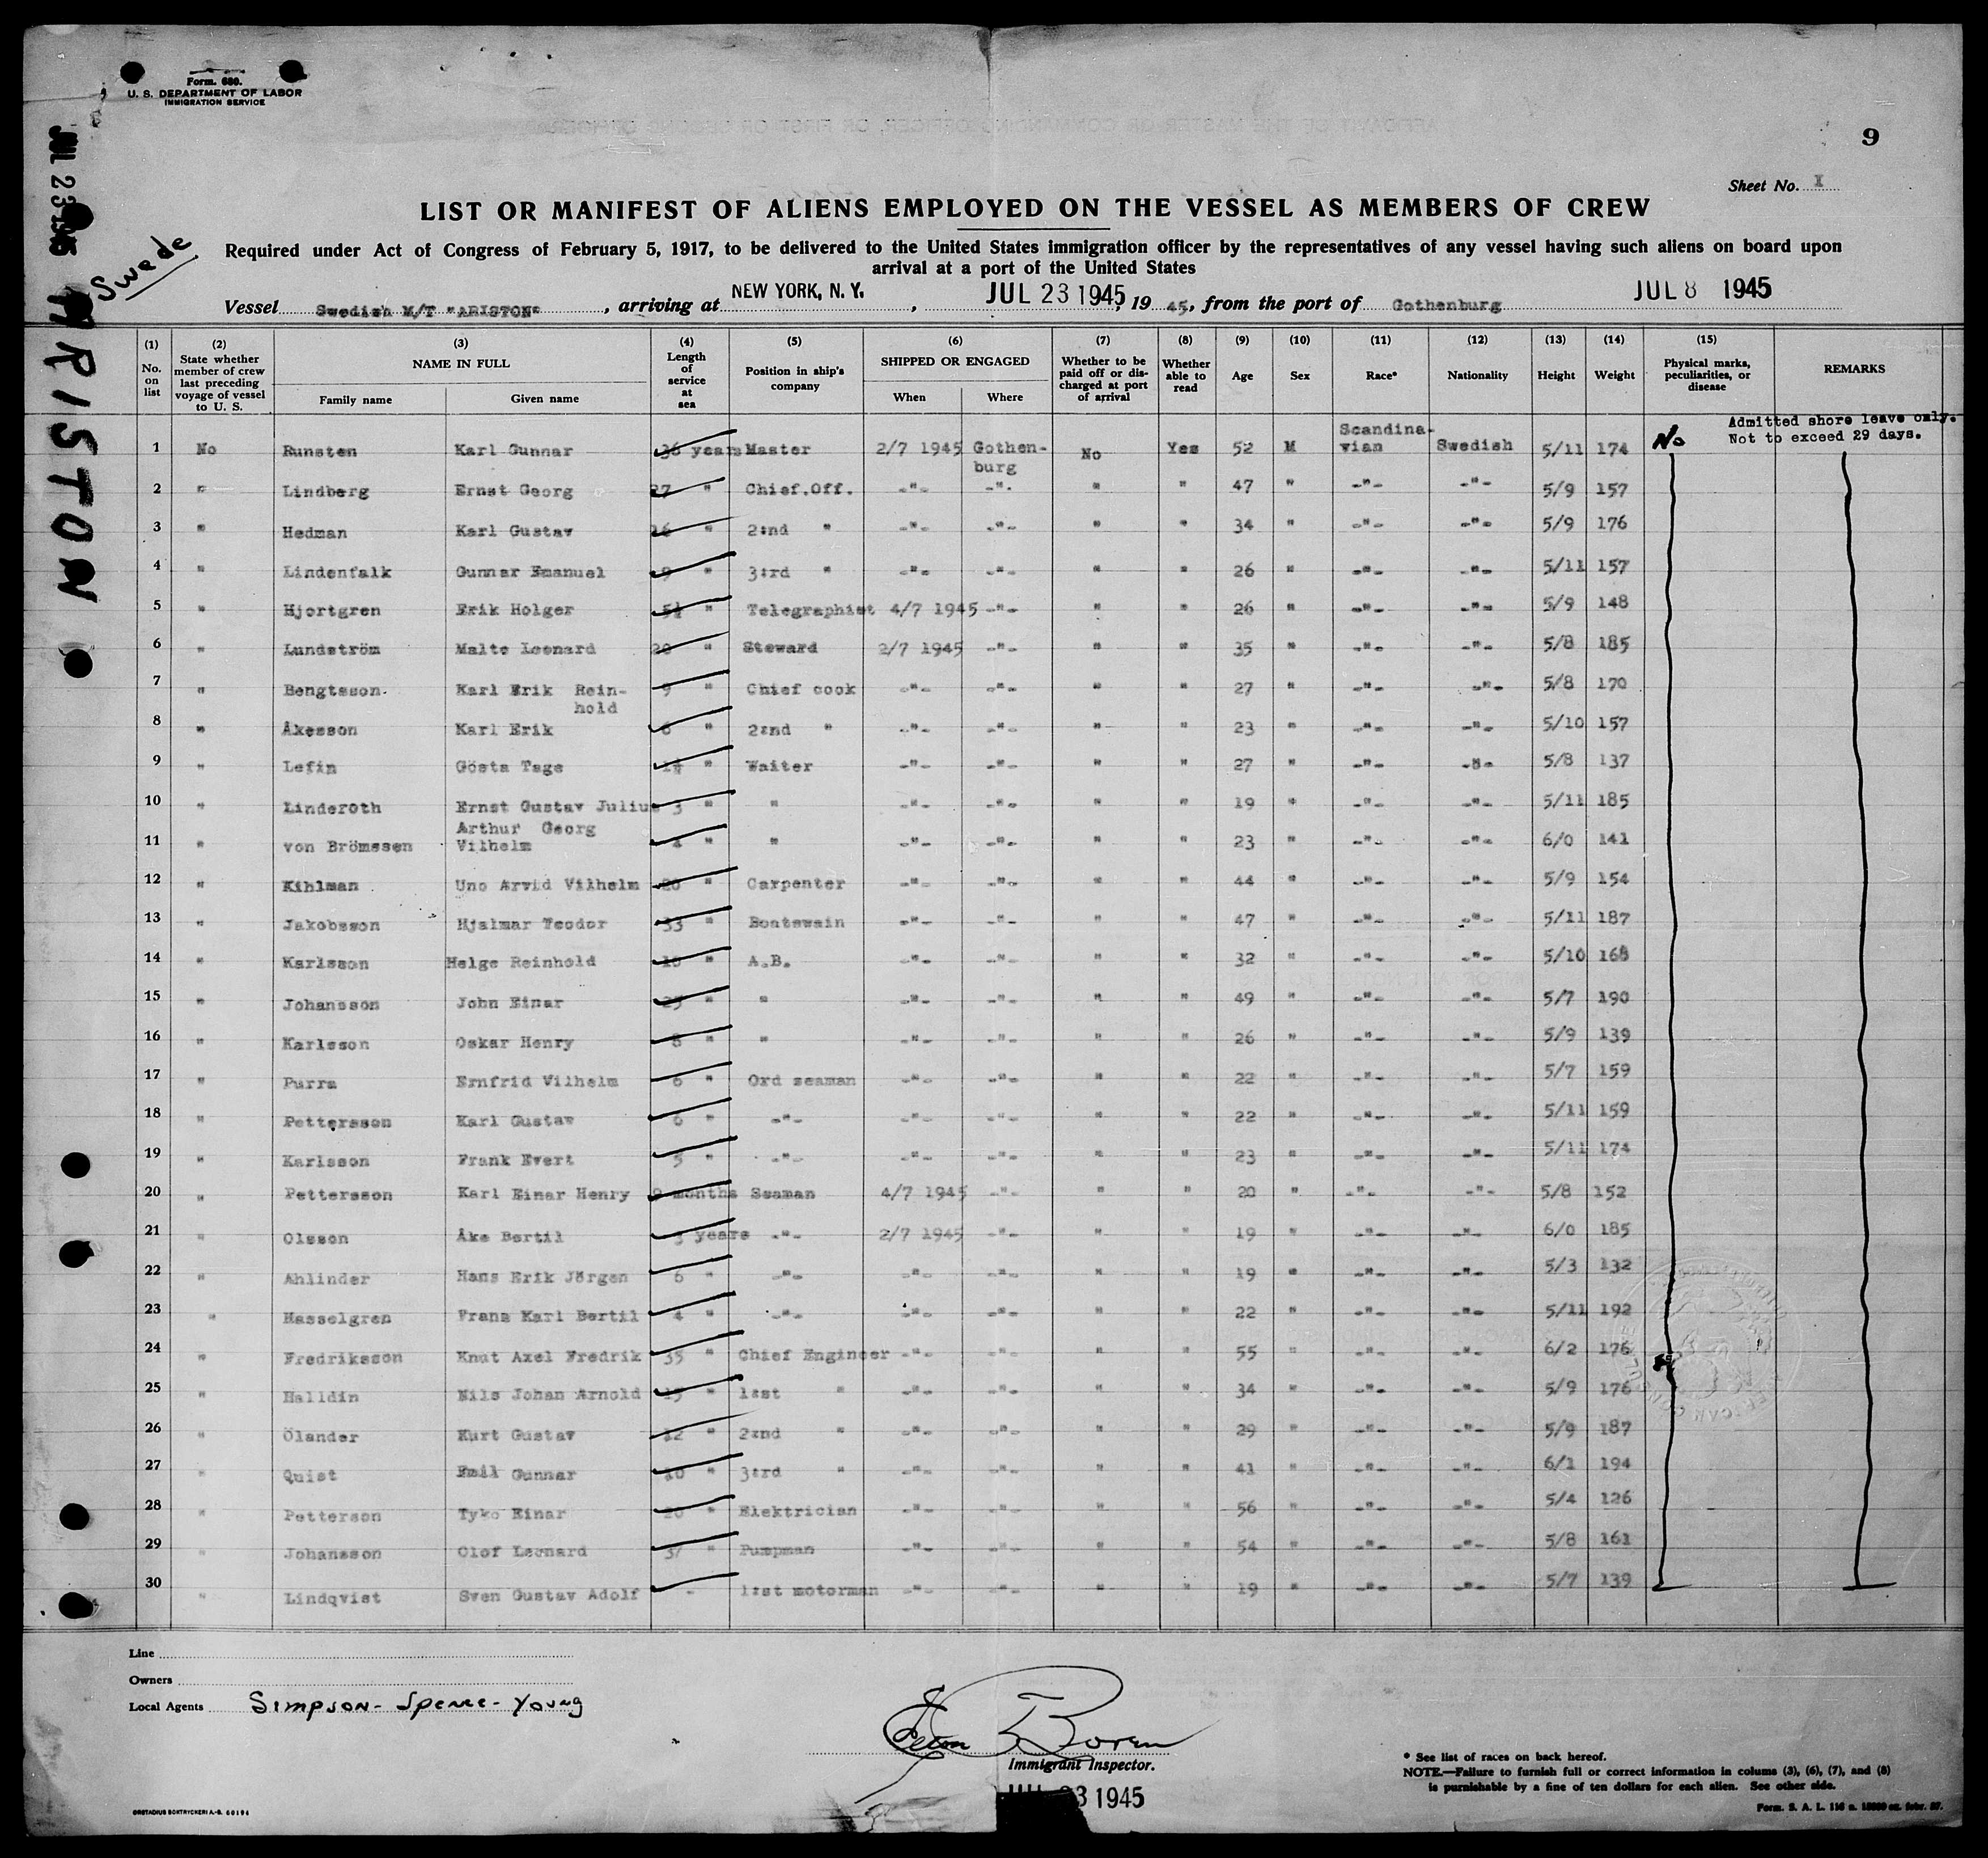 Form. 680.
U. S. DEPARTMENT OF LABOR
IMMIGRATION SERVICE
JUL 23 1945
ARISTON
Swede
9
Sheet No. I
LIST OR MANIFEST OF ALIENS EMPLOYED ON THE VESSEL AS MEMBERS OF CREW
Required under Act of Congress of February 5, 1917, to be delivered to the United States immigration officer by the representatives of any vessel having such aliens on board upon
arrival at a port of the United States
Vessel Swedish M/T "ARISTON", arriving at NEW YORK, N. Y., JUL 23 1945, 19 45, from the port of Gothenburg JUL 8 1945
(1) No. on list (2) State whether member of crew last preceding voyage of vessel to U. S. (3) NAME IN FULL Family name Given name (4) Length of service at sea (5) Position in ship's company (6) SHIPPED OR ENGAGED When Where (7) Whether to be paid off or discharged at port of arrival (8) Whether able to read (9) Age (10) Sex (11) Race* (12) Nationality (13) Height (14) Weight (15) Physical marks, peculiarities, or disease REMARKS
Admitted shore leave only.
Not to exceed 29 days.
1 No Runsten Karl Gunnar 36 years Master 2/7 1945 Gothenburg No Yes 52 M Scandinavian Swedish 5/11 174 No
2 " Lindberg Ernst Georg 27 " Chief.Off. -"- -"- " " 47 " -"- -"- 5/9 157
3 " Hedman Karl Gustav 16 " 2:nd " -"- -"- " " 34 " -"- -"- 5/9 176
4 " Lindenfalk Gunnar Emanuel 9 " 3:rd " -"- -"- " " 26 " -"- -"- 5/11 157
5 " Hjortgren Erik Holger 5½ " Telegraphist 4/7 1945 -"- " " 26 " -"- -"- 5/9 148
6 " Lundström Malte Leonard 20 " Steward 2/7 1945 -"- " " 35 " -"- -"- 5/8 185
7 " Bengtsson Karl Erik Reinhold 9 " Chief cook -"- -"- " " 27 " -"- -"- 5/8 170
8 " Åkesson Karl Erik 6 " 2:nd " -"- -"- " " 23 " -"- -"- 5/10 157
9 " Lefin Gösta Tage " Waiter -"- -"- " " 27 " -"- -"- 5/8 137
10 " Linderoth Ernst Gustav Julius 3 " " -"- -"- " " 19 " -"- -"- 5/11 185
11 " von Brömssen Arthur Georg Vilhelm 4 " " -"- -"- " " 23 " -"- -"- 6/0 141
12 " Kihlman Uno Arvid Vilhelm 20 " Carpenter -"- -"- " " 44 " -"- -"- 5/9 154
13 " Jakobsson Hjalmar Teodor 33 " Boatswain -"- -"- " " 47 " -"- -"- 5/11 187
14 " Karlsson Helge Reinhold " A.B. -"- -"- " " 32 " -"- -"- 5/10 168
15 " Johansson John Einar 25 " " -"- -"- " " 49 " -"- -"- 5/7 190
16 " Karlsson Oskar Henry 8 " " -"- -"- " " 26 " -"- -"- 5/9 139
17 " Purra Ernfrid Vilhelm 6 " Ord seaman -"- -"- " " 22 " -"- -"- 5/7 159
18 " Pettersson Karl Gustav 6 " -"- -"- -"- " " 22 " -"- -"- 5/11 159
19 " Karlsson Frank Evert 5 " -"- -"- -"- " " 23 " -"- -"- 5/11 174
20 " Pettersson Karl Einar Henry 9 months Seaman 4/7 1945 -"- " " 20 " -"- -"- 5/8 152
21 " Olsson Åke Bertil 3 years -"- 2/7 1945 -"- " " 19 " -"- -"- 6/0 185
22 " Ahlinder Hans Erik Jörgen 6 " -"- -"- -"- " " 19 " -"- -"- 5/3 132
23 " Hasselgren Frans Karl Bertil 4 " -"- -"- -"- " " 22 " -"- -"- 5/11 192
24 " Fredriksson Knut Axel Fredrik 35 " Chief Engineer -"- -"- " " 55 " -"- -"- 6/2 176
25 " Halldin Nils Johan Arnold 15 " 1:st " -"- -"- " " 34 " -"- -"- 5/9 176
26 " Ölander Kurt Gustav 12 " 2:nd " -"- -"- " " 29 " -"- -"- 5/9 187
27 " Quist Emil Gunnar 10 " 3:rd " -"- -"- " " 41 " -"- -"- 6/1 194
28 " Petterson Tyko Einar 20 " Elektrician -"- -"- " " 56 " -"- -"- 5/4 126
29 " Johansson Olof Leonard 37 " Pumpman -"- -"- " " 54 " -"- -"- 5/8 161
30 " Lindqvist Sven Gustav Adolf - 1:st motorman -"- -"- " " 19 " -"- -"- 5/7 139
Line
Owners
Local Agents Simpson-Spence-Young
Boren
Immigrant Inspector.
JUL 23 1945
* See list of races on back hereof.
NOTE.—Failure to furnish full or correct information in colums (3), (6), (7), and (8)
is punishable by a fine of ten dollars for each alien. See other side.
ORSTADIUS BOKTRYCKERI A.-B. 60194